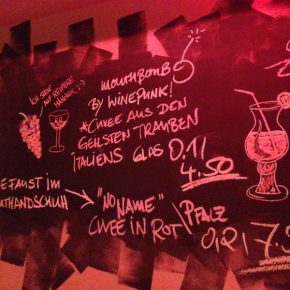 ICH STEH
AUF REIFERE
MÄNNER! ;-)
MOUTHBOMB
BY WINEPUNK!
*CUVÉE AUS DEN
GEILSTEN TRAUBEN
ITALIENS GLAS 0,1l
4.50
E FAUST IM
THANDSCHUH
"NO
NAME"
CUVEE IN ROT \ PFALZ
0,2l 7.5